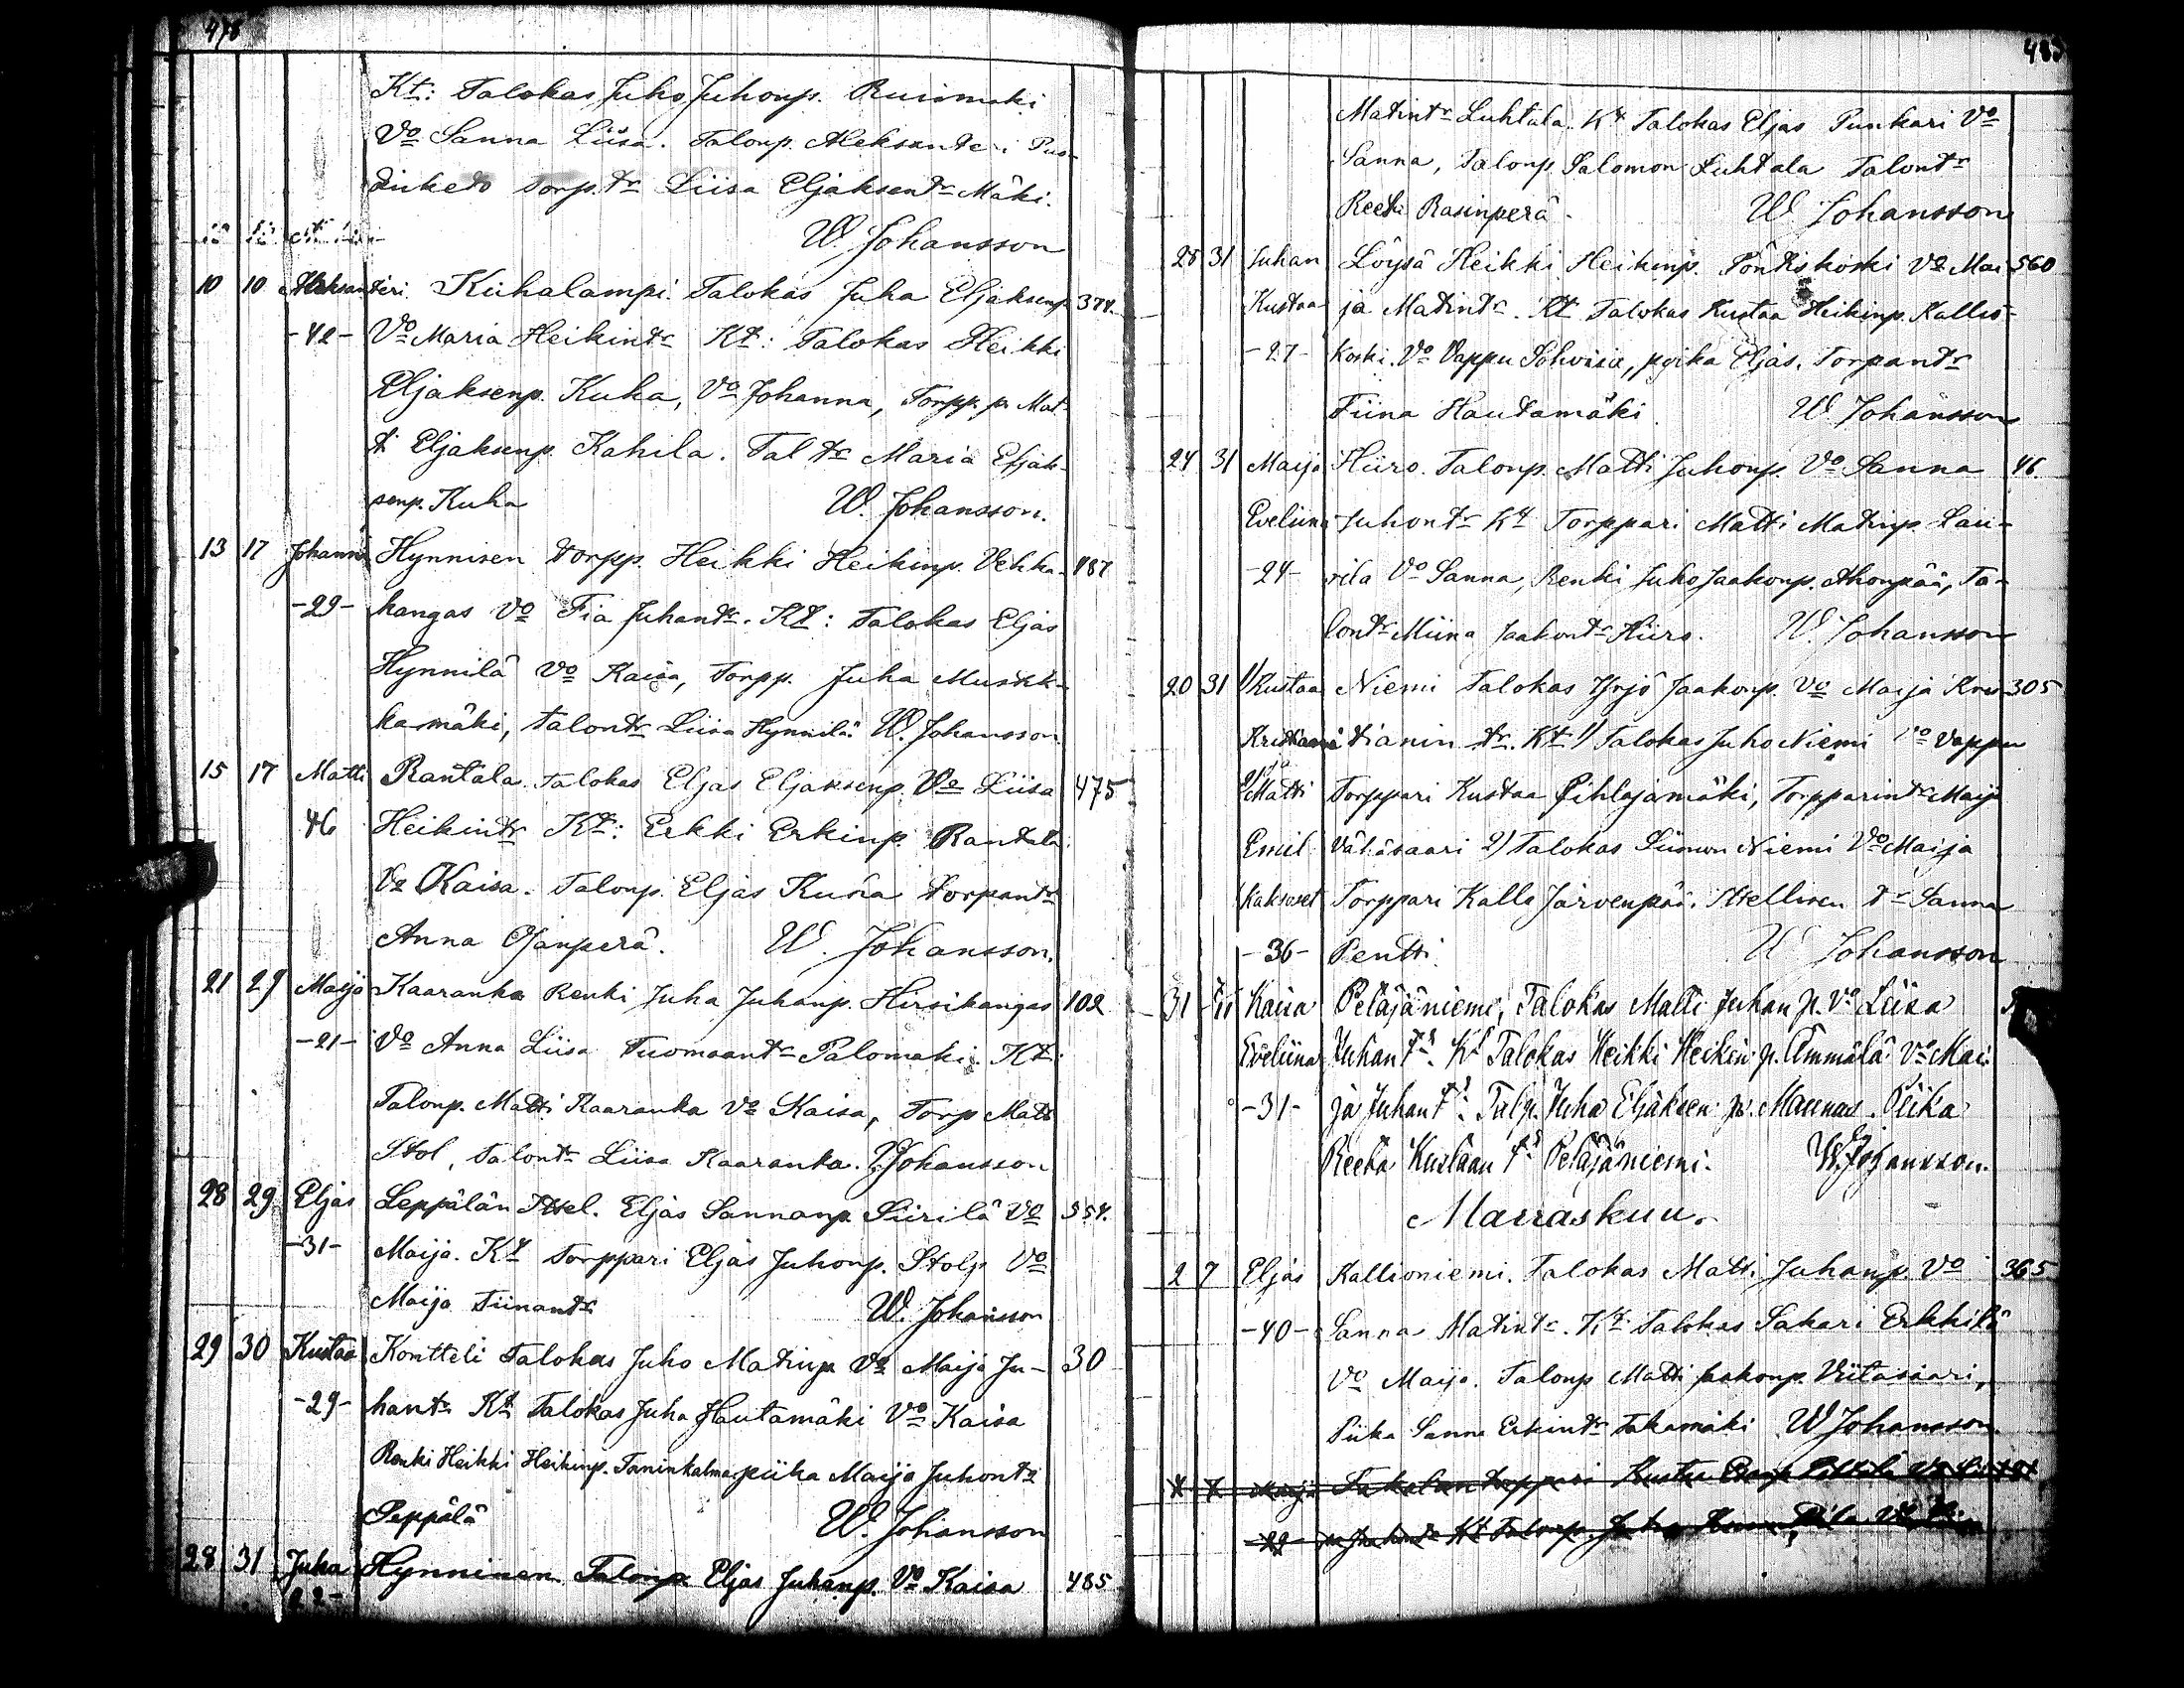 478
Kt: Talokas Juho Juhonp. Ruismäki
Vo Sanna Liisa. Talonp. Aleksanteri
torp.tr Liisa Eljaksentr Mäki.
W. Johansson
10 10 Aleksanteri Kuhalampi. Talokas Juha Eljaksenp. 374.
-42- Vo Maria Heikintr Kt: Talokas Heikki
Eljaksenp. Kuha, Vo Johanna, Torpp. p. Mat-
ti Eljaksenp. Kahila. Tal tr Maria Eljak-
senp. Kuha W. Johansson.
13 17 Johanna Hynnisen torpp. Heikki Heikinp. Vehka- 487
-29- kangas Vo Fia Juhantr. Kt: Talokas Eljas
Hynnilä Vo Kaisa, Torpp. Juha Mustik-
kamäki, talontr Liisa Hynnilä. W. Johansson.
15 17 Matti Rantala Talokas Eljas Eljaksenp. Vo Liisa 475
46 Heikintr Kt: Erkki Erkinp. Rantala
Vo Kaisa. Talonp. Eljas Kuha torpantr
Anna Ojanperä. W. Johansson.
21 29 Maija Kaaranka Renki Juha Juhanp. Hirsikangas 102
-21- Vo Anna Liisa Tuomaantr Palomäki Kt:
Talonp. Matti Kaaranka Vo Kaisa, Torp Matti
Stol, Talontr Liisa Kaaranka. W. Johansson
28 29 Eljas Leppälän Itsel. Eljas Sannanp. Piirilä Vo 554.
-31- Maija. Kt Torppari Eljas Juhonp. Stolp Vo
Maija Tiinantr W. Johansson
29 30 Kustaa Kontteli Talokas Juho Matinp. Vo Maija Ju- 30
-29- hantr Kt Talokas Juha Hautamäki Vo Kaisa
Renki Heikki Heikinp. piika Maija Juhontr
Seppälä W. Johansson
28 31 Juha Hynninen Talonp Eljas Juhanp. Vo Kaisa 485
22-
Matintr Luhtala. Kt Talokas Eljas Punkari Vo
Sanna, Talonp. Salomon Luhtala Talontr
Reeta Rasinperä. W. Johansson
28 31 Juhan Löysä Heikki Heikinp. Pöntiskoski Vo Mai- 560
Kustaa ja Matintr. Kt Talokas Kustaa Heikinp. Kallio-
-27- koski. Vo Vappu poika Eljas. Torpantr
Tiina Hautamäki W. Johansson
24 31 Maija Hiiro. Talonp. Matti Juhonp. Vo Sanna 46.
Eveliina Juhontr Kt Torppari Matti Matinp. Lau-
-24- rila Vo Sanna, Renki Juho Jaakonp. Ahonpää, Ta-
lontr Miina Jaakontr Hiiro. W. Johansson
20 31 1/Kustaa Niemi Talokas Yrjö Jaakonp. Vo Maija Kris- 305
Kristiaana tianin tr. Kt 1/ Talokas Juho Niemi Vo Vappu
2/Matti Torppari Kustaa Pihlajamäki, Torpparintr Maija
Emil Välisaari 2) Talokas Siimon Niemi Vo Maija
Kaksoset Torppari Kalle Järvenpää. Itsellisen tr Sanna
-36- Pentti. W Johansson
31 Kaisa Peläjäniemi, Talokas Matti Juhan p. Vo Liisa
Eveliina Juhan tr. Kt Talokas Heikki Heikin p. Ämmälä Vo Mai-
-31- ja Juhan tr. Talp. Juha Eljaksen p. Maunus. Piika
Reeta Kustaan tr Peläjäniemi. W. Johansson.
Marraskuu.
2 7 Eljas Kallioniemi. Talokas Matti Juhanp. Vo 365
-40- Sanna Matintr. Kt Talokas Sakari Erkkilä
Vo Maija. Talonp Matti Jaakonp. Viitasaari,
Piika Sanna Erkintr Takamäki W Johansson.